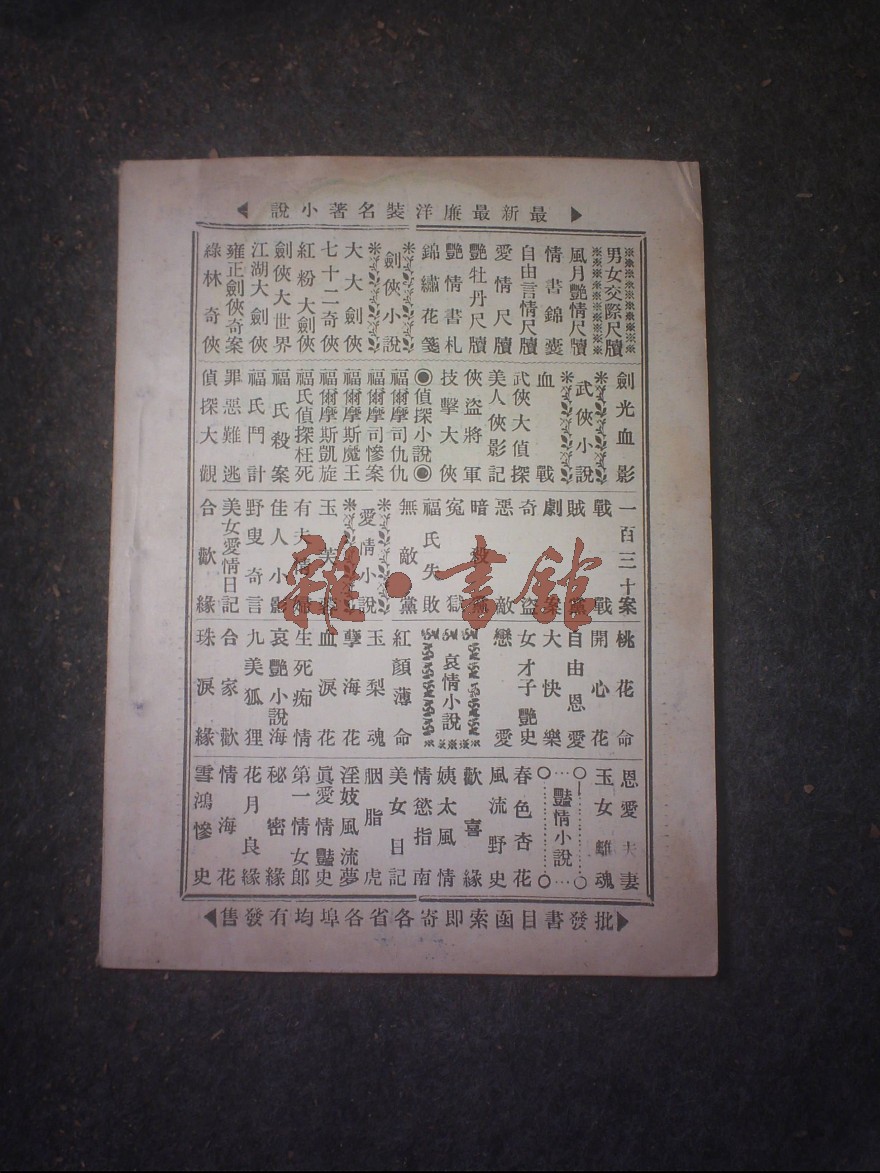 最新最廉洋裝名著小說
男女交際尺牘
風月艷情尺牘
情書錦囊
自由言情尺牘
愛情尺牘
艷牡丹尺牘
艷情書札
錦繡花箋
劍俠小說
大大劍俠
七十二奇俠
紅粉大劍俠
劍俠大世界
江湖大劍俠
雍正劍俠奇案
綠林奇俠
劍光血影
武俠小說
血戰
武俠大偵探
美人俠影記
俠盜將軍
技擊大俠
偵探小說
福爾摩司仇仇
福爾摩司慘案
福爾摩斯魔王
福爾摩斯凱旋
福氏偵探枉死
福氏殺案
福氏鬥計
罪惡難逃
偵探大觀
一百三十案
戰戰
賊黨
劇案
奇盜
惡敵
暗殺黨
冤獄
福氏失敗
無敵黨
愛情小說
玉芙
有夫情
佳人小影
野叟奇言
美女愛情日記
合歡緣
桃花命
開心花
自由恩愛
大快樂
女才子艷史
戀愛
哀情小說
紅顏薄命
玉梨魂
孽海花
血淚花
生死痴情
哀艷小說海
九美狐狸
合家歡
珠淚緣
恩愛夫妻
玉女離魂
豔情小說
春色杏花
風流野史
歡喜緣
姨太風情
情慾指南
美女日記
胭脂虎
淫妓風流夢
眞愛情豔史
第一情女郎
秘密緣
花月良緣
情海花
雪鴻慘史
批發書目函索即寄各省各埠均有發售
雜·書館